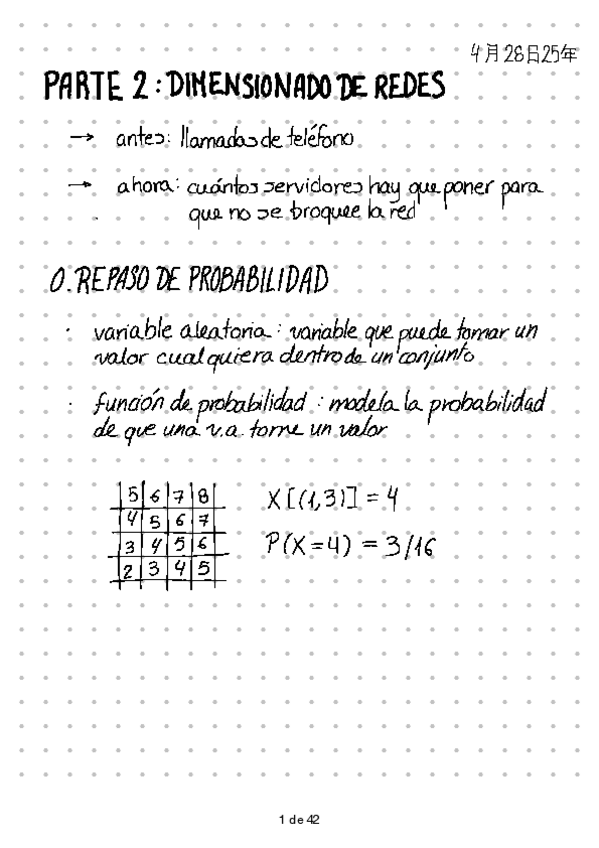 4月28日25年
PARTE 2: DIMENSIONADO DE REDES
→ antes: llamadas de teléfono
→ ahora: cuántos servidores hay que poner para
que no se broquee la red
0. REPASO DE PROBABILIDAD
· variable aleatoria: variable que puede tomar un
valor cualquiera dentro de un conjunto
· función de probabilidad: modela la probabilidad
de que una v.a. tome un valor
5 6 7 8 X[(1,3)] = 4
4 5 6 7
3 4 5 6 P(X=4) = 3/16
2 3 4 5
1 de 42